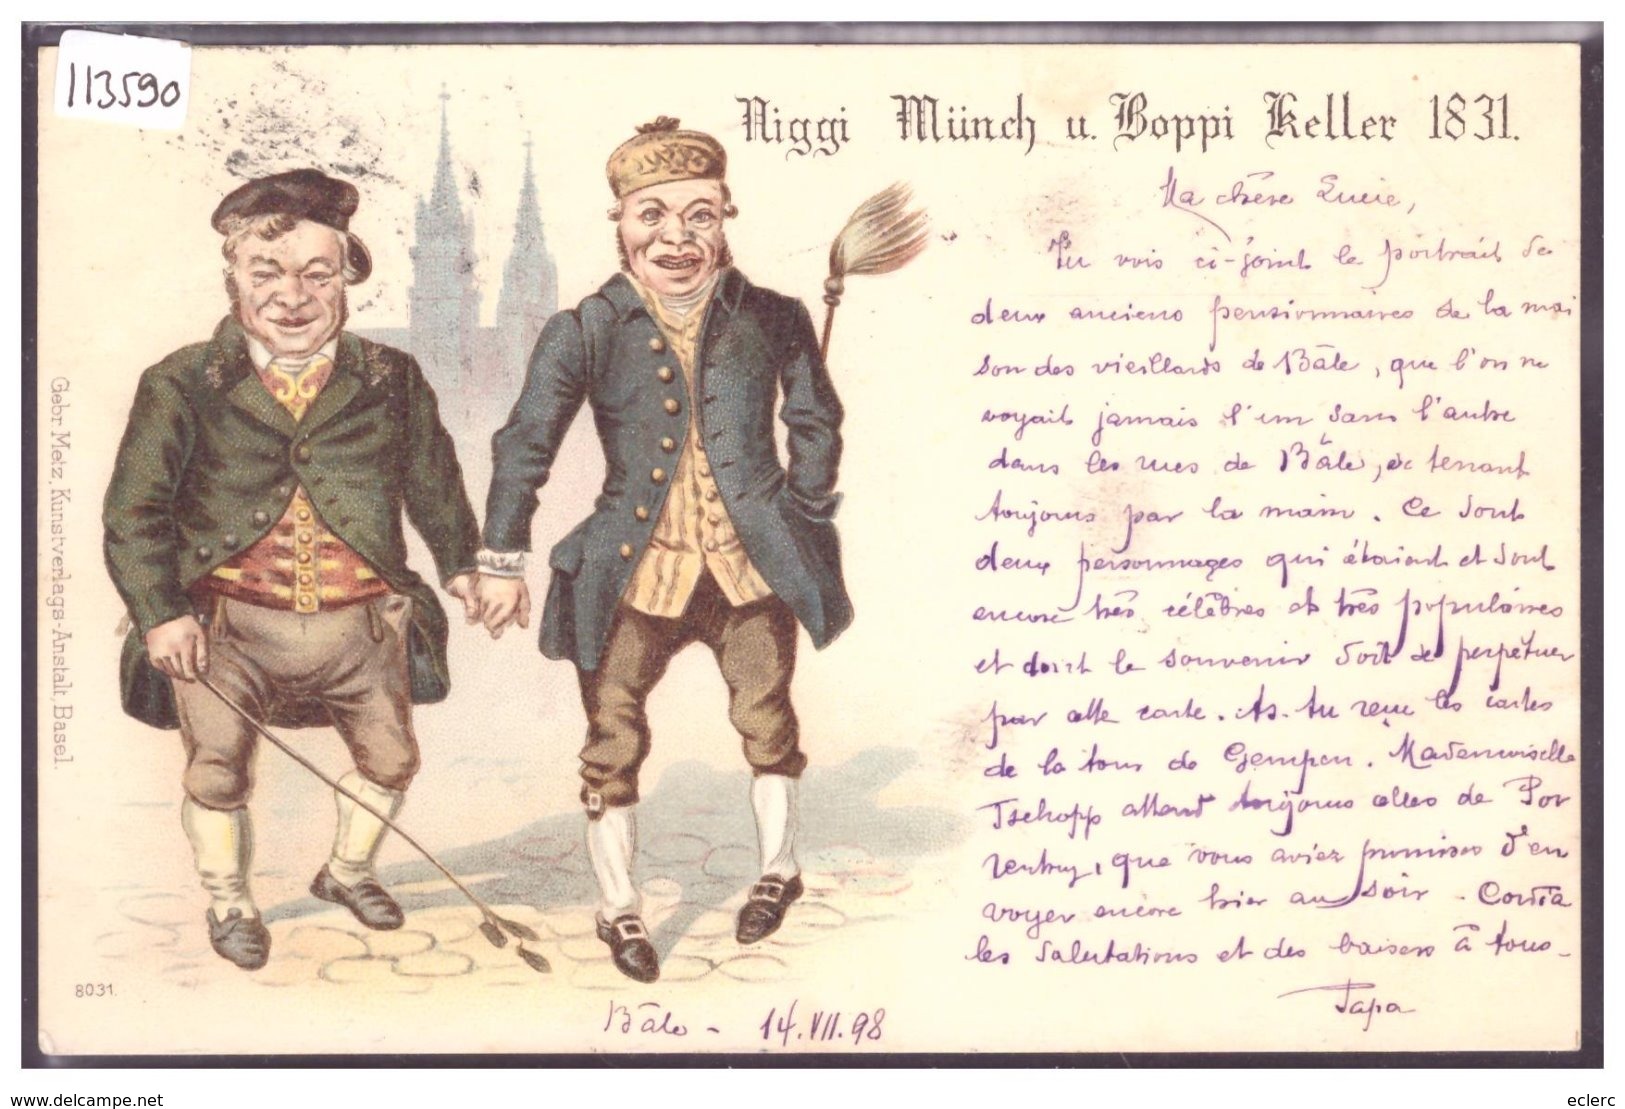 113590
Niggi Münch u. Boppi Keller 1831.
Ma chère Lucie,
Tu vois ci-joint le portrait de
deux anciens pensionnaires de la mai
son des vieillards de Bâle, que l'on ne
voyait jamais l'un sans l'autre
dans les rues de Bâle, se tenant
toujours par la main. Ce sont
deux personnages qui étaient et sont
encore très célèbres et très populaires
et dont le souvenir doit se perpétuer
par cette carte. As-tu reçu les cartes
de la tour de Gempen. Mademoiselle
Tschopp attend toujours celles de Por
rentruy, que vous aviez promises d'en
voyer encore hier au soir. Cordia
les salutations et des baisers à tous-
Papa
Bâle - 14.VII.98
Gebr Metz, Kunstverlags-Anstalt, Basel.
8031.
www.delcampe.net
eclerc